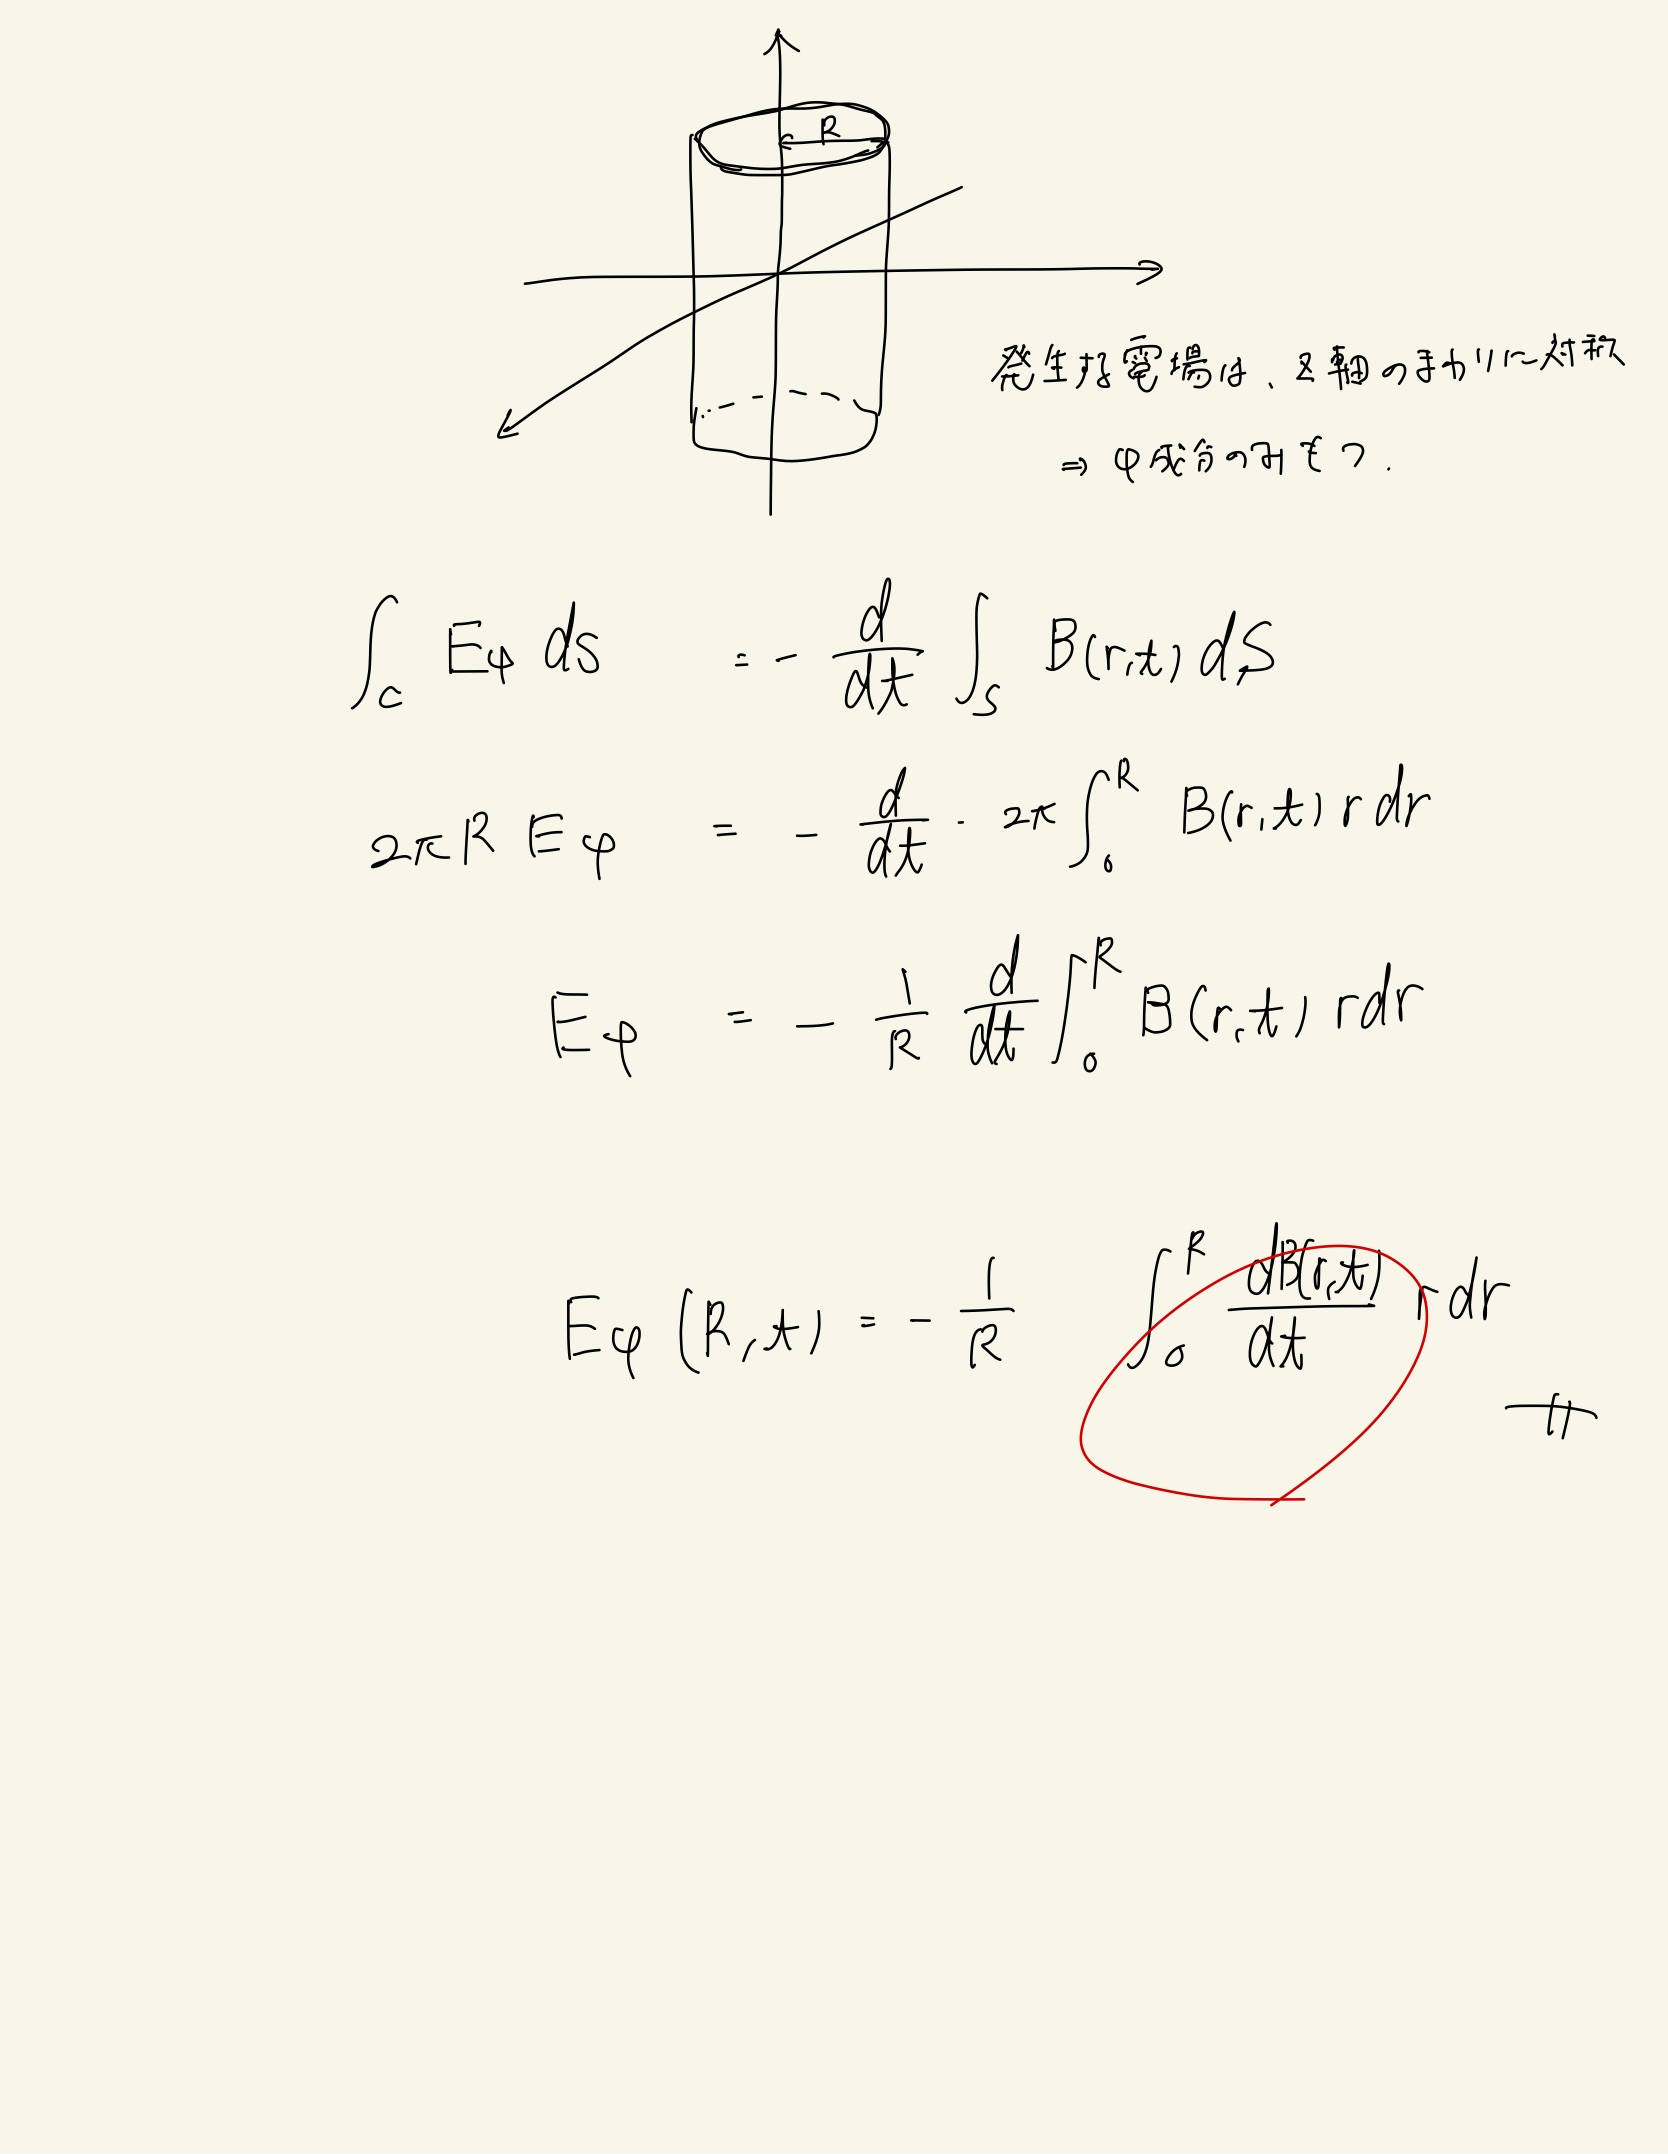 R
発生する電場は、z軸のまわりに対称
⇒ φ成分のみをもつ.
∫_C E_φ ds = - d/dt ∫_S B(r,t) dS
2πR E_φ = - d/dt · 2π ∫_0^R B(r,t) r dr
E_φ = - 1/R d/dt ∫_0^R B(r,t) r dr
E_φ (R,t) = - 1/R ∫_0^R dB(r,t)/dt r dr